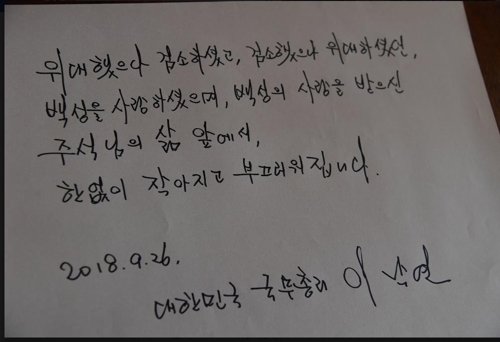 위대했으나 검소하셨고, 검소했으나 위대하셨던,
백성을 사랑하셨으며, 백성의 사랑을 받으신
주석님의 삶 앞에서,
한없이 작아지고 부끄러워집니다.
2018.9.26.
대한민국 국무총리 이 낙연